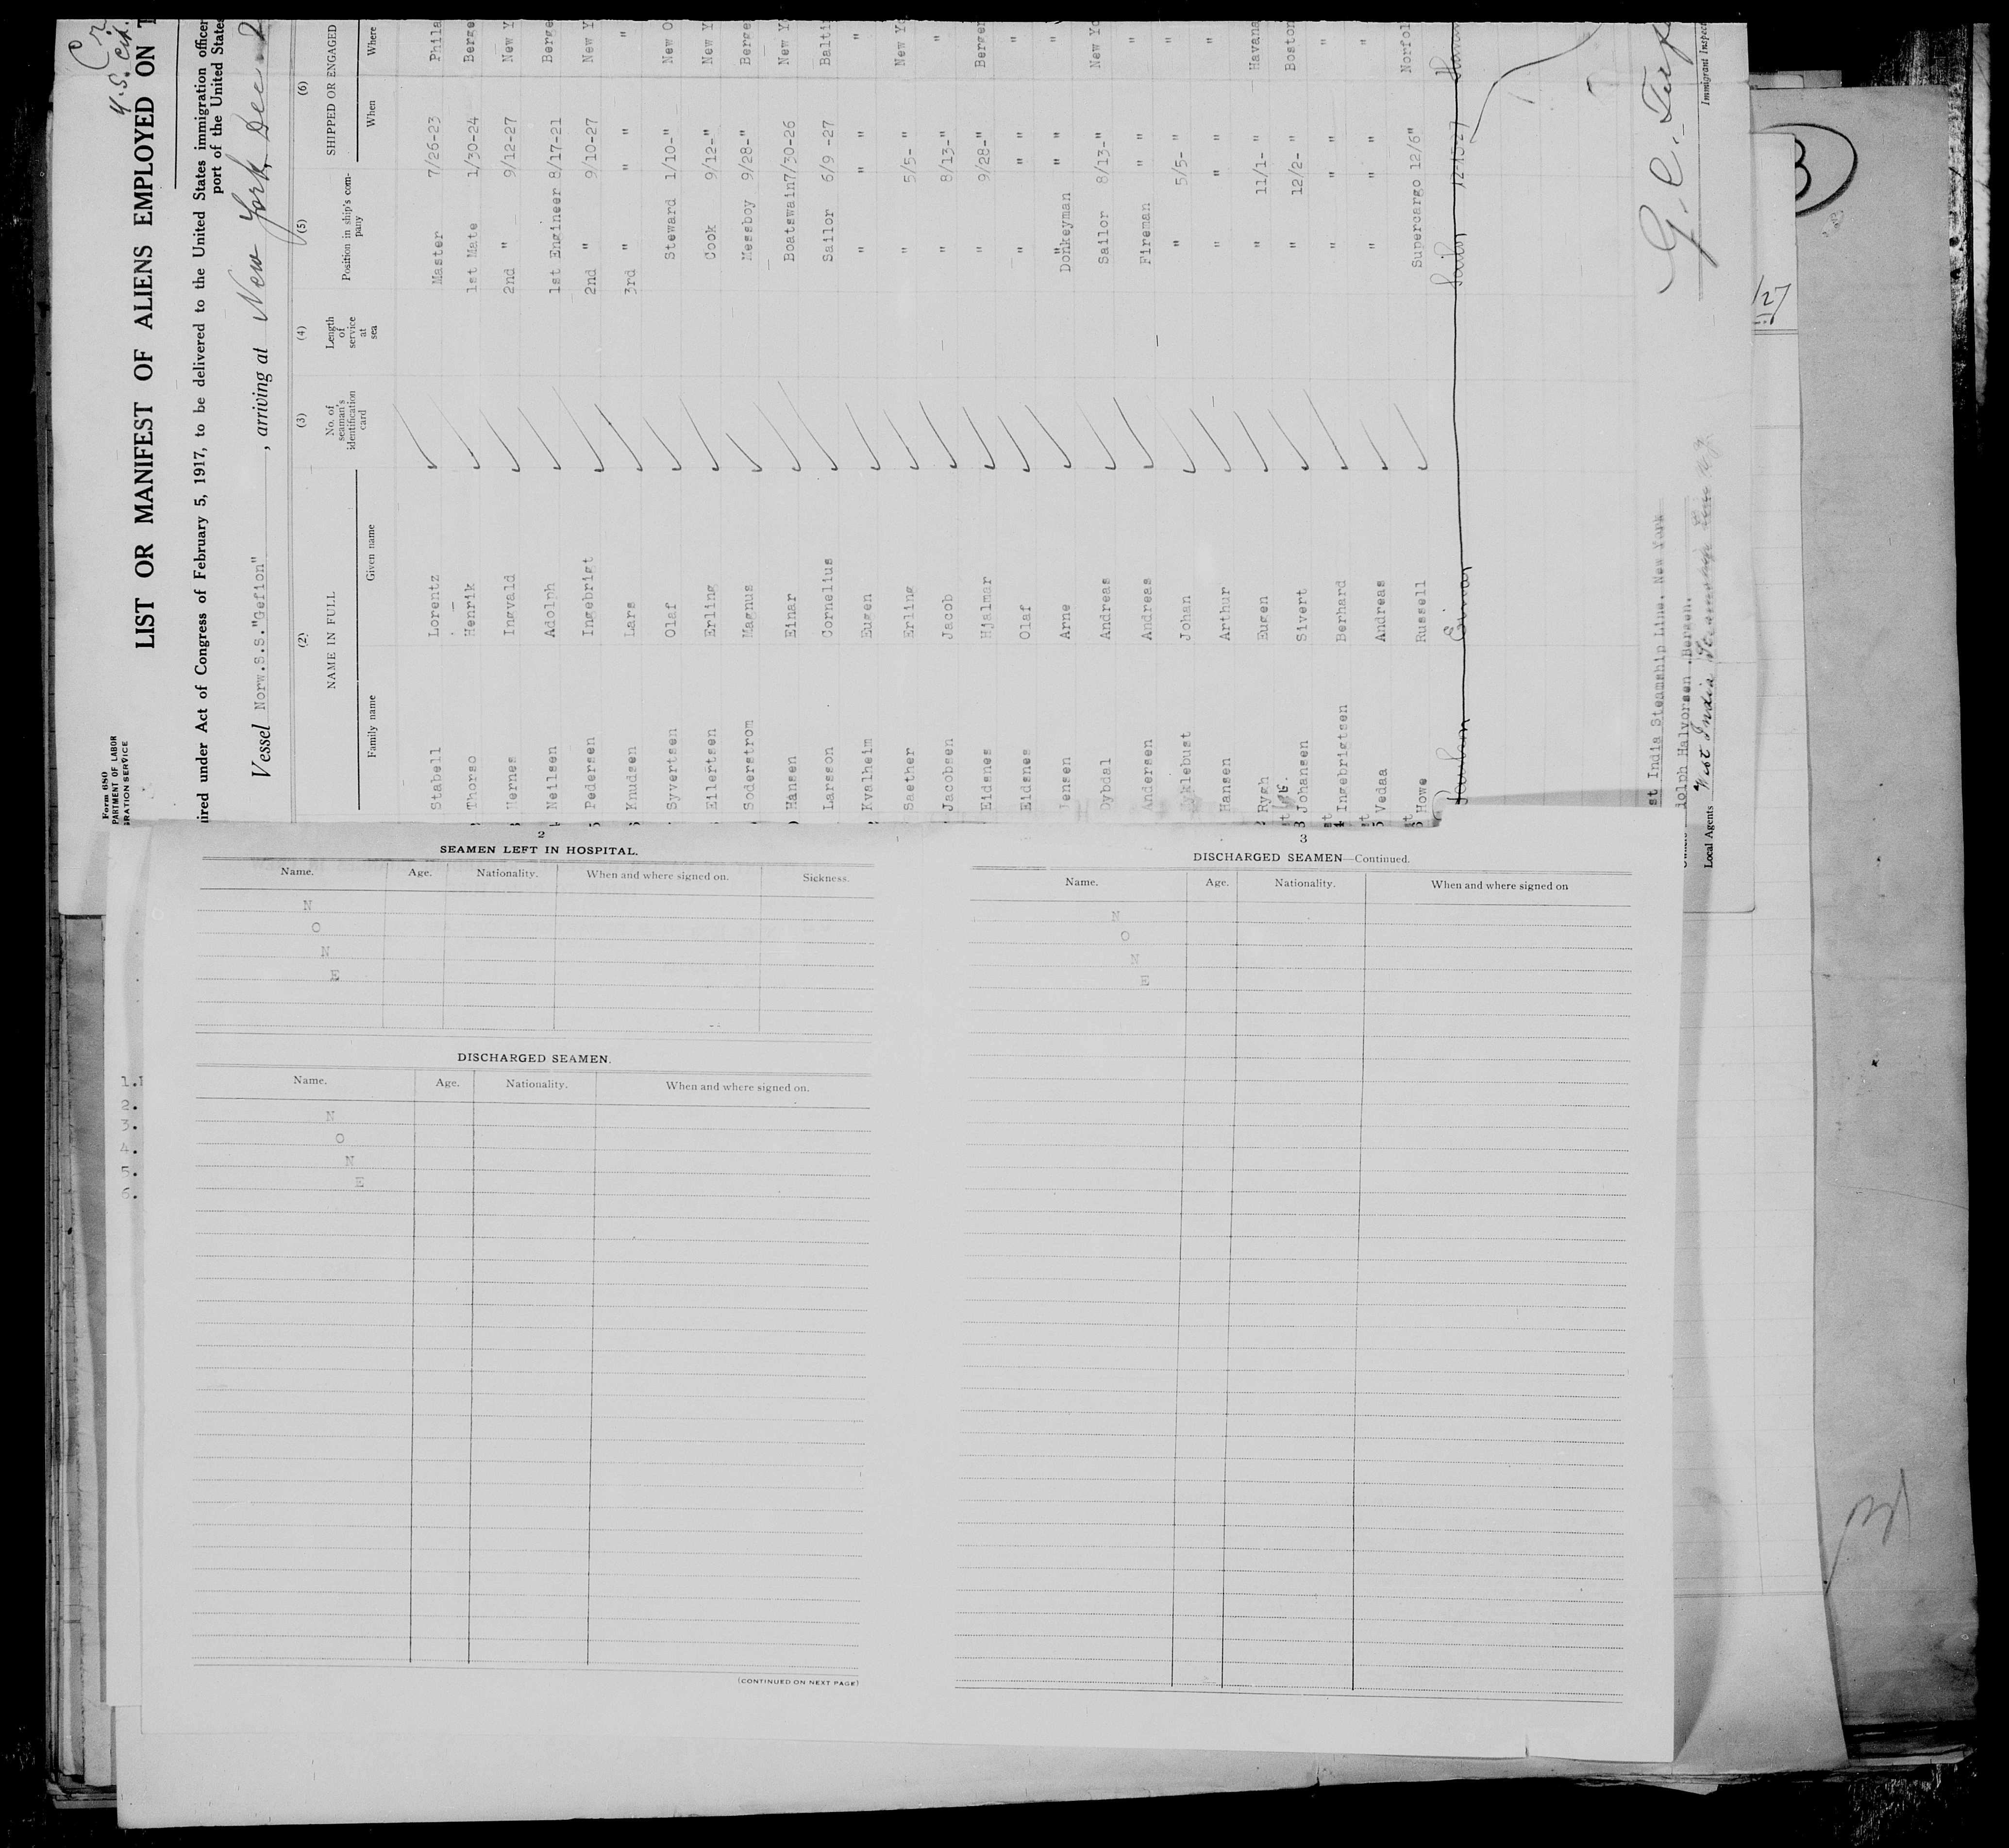 Form 680
PARTMENT OF LABOR
RATION SERVICE
U.S. Cit.
LIST OR MANIFEST OF ALIENS EMPLOYED ON T
ired under Act of Congress of February 5, 1917, to be delivered to the United States immigration officer
port of the United States
Vessel Norw.S.S."Gefion" , arriving at New York, Dec 2
(2) (3) (4) (5) (6)
NAME IN FULL No. of seaman's identification card Length of service at sea Position in ship's company SHIPPED OR ENGAGED
Family name Given name When Where
Stabell Lorentz Master 7/26-23 Phila
Thorso Henrik 1st Mate 1/30-24 Berge
Hernes Ingvald 2nd " 9/12-27 New Y
Neilsen Adolph 1st Engineer 8/17-21 Berge
5 Pedersen Ingebrigt 2nd " 9/10-27 New Y
Knudsen Lars 3rd " " " "
Syvertsen Olaf Steward 1/10-" New O
Eilertsen Erling Cook 9/12-" New Y
Soderstrom Magnus Messboy 9/28-" Berge
Hansen Einar Boatswain 7/30-26 New Y
Larsson Cornelius Sailor 6/9 -27 Balti
Kvalheim Eugen " " " "
Saether Erling " 5/5- " New Yo
Jacobsen Jacob " 8/13-" "
Eidsnes Hjalmar " 9/28-" Bergen
Eidsnes Olaf " " " "
Jensen Arne Donkeyman " " "
Dybdal Andreas Sailor 8/13-" New Yo
Andersen Andreas Fireman " " "
yklebust Johan " 5/5- " "
Hansen Arthur " " " "
Rygh Eugen " 11/1- " Havana
3 Johansen Sivert " 12/2- " Boston
4 Ingebrigtsen Berhard " " " "
5 Vedaa Andreas " " " "
6 Howe Russell Supercargo 12/6" Norfol
Einar Sailor 12-15-27
st India Steamship Line, New York
dolph Halvorsen, Bergen.
Local Agents West India Steamship Line N.Y.
Immigrant Inspec
/27
2
SEAMEN LEFT IN HOSPITAL.
Name. Age. Nationality. When and where signed on. Sickness.
N
O
N
E
DISCHARGED SEAMEN.
Name. Age. Nationality. When and where signed on.
N
O
N
E
(CONTINUED ON NEXT PAGE)
1.
2.
3.
4.
5.
6.
3
DISCHARGED SEAMEN—Continued.
Name. Age. Nationality. When and where signed on
N
O
N
E